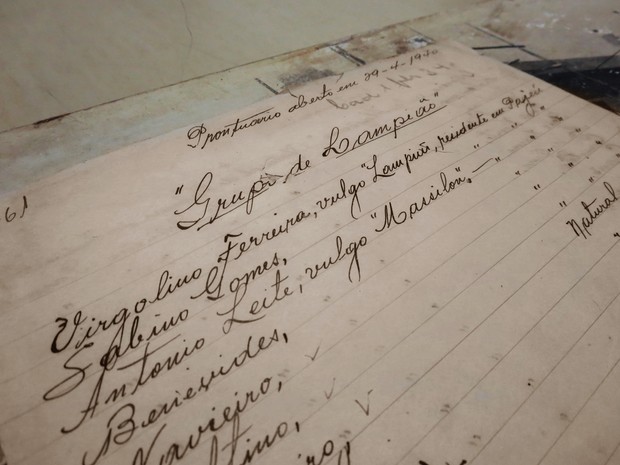 Prontuario aberto em 29-4-1940
61
"Grupo de Lampeão"
Virgolino Ferreira, vulgo "Lampeão, residente em Pajeú
Sabino Gomes, " " " "
Antonio Leite, vulgo "Massilon", — " " "
Benevides, Natural
Navieiro,